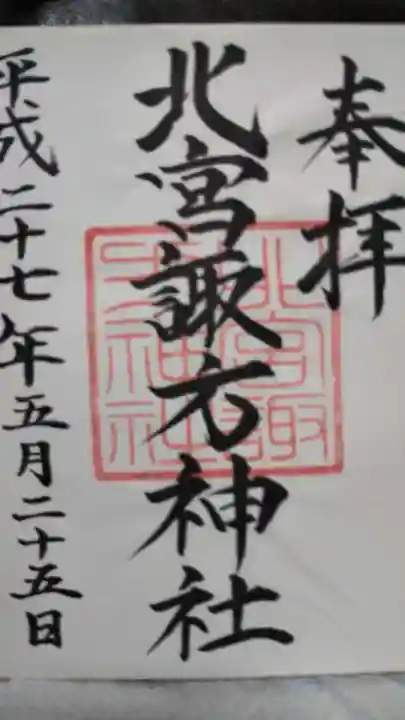 奉拝
北宮諏方神社
北宮諏
方神社
平成二十七年五月二十五日